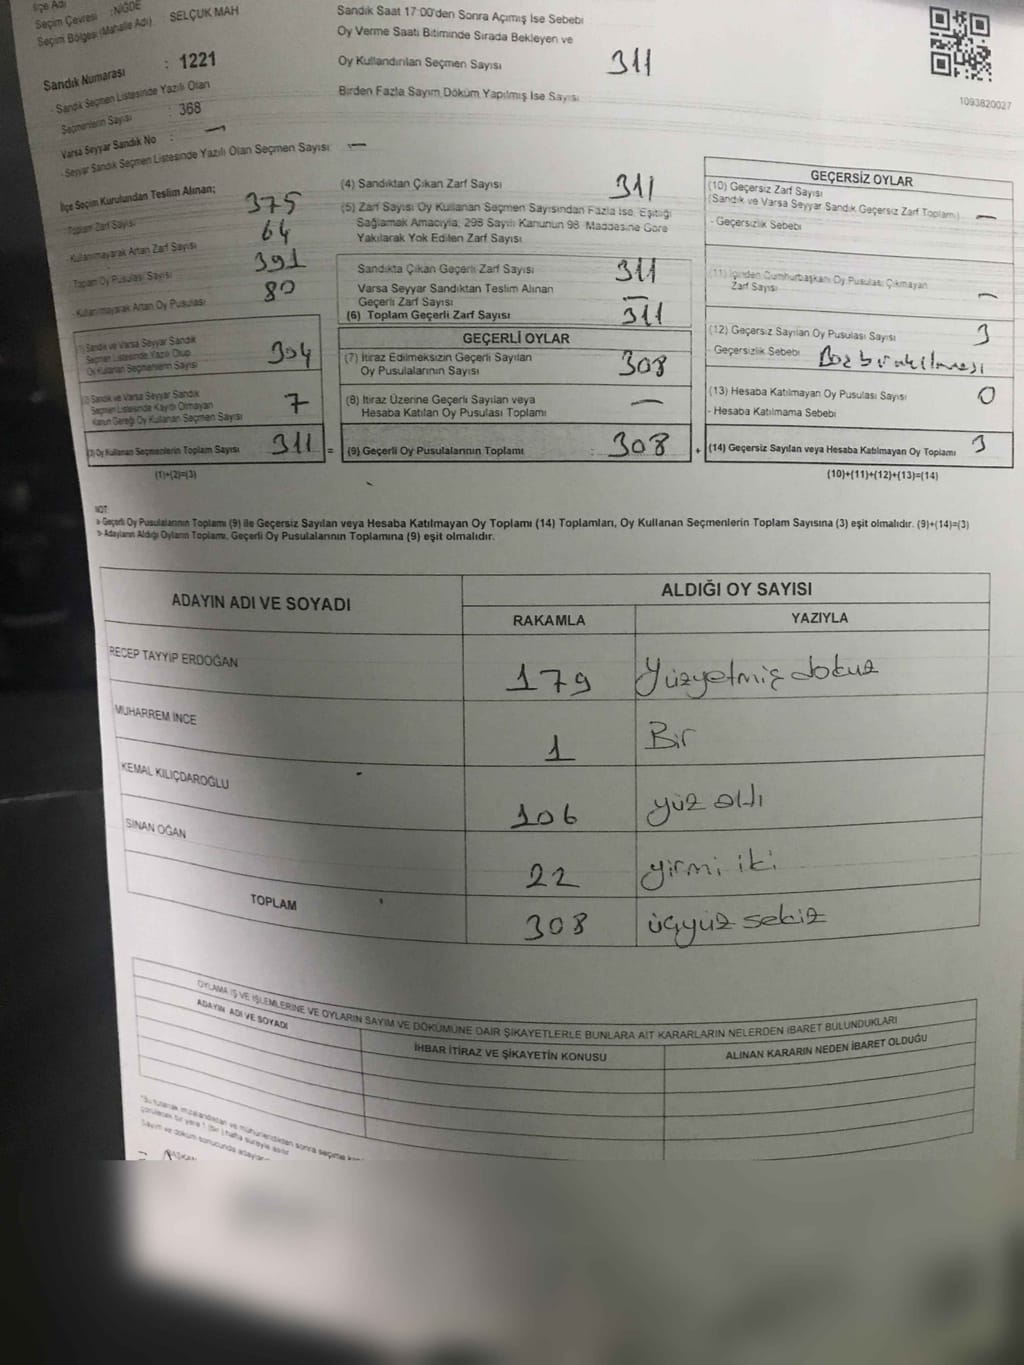 İlçe Adı
Seçim Çevresi : NİĞDE
Seçim Bölgesi (Mahalle Adı) SELÇUK MAH
Sandık Numarası : 1221
- Sandık Seçmen Listesinde Yazılı Olan
Seçmenlerin Sayısı : 368
Varsa Seyyar Sandık No : —
- Seyyar Sandık Seçmen Listesinde Yazılı Olan Seçmen Sayısı: —
Sandık Saat 17:00'den Sonra Açımış İse Sebebi
Oy Verme Saati Bitiminde Sırada Bekleyen ve
Oy Kullandırılan Seçmen Sayısı 311
Birden Fazla Sayım Döküm Yapılmış İse Sayısı
1093820027
İlçe Seçim Kurulundan Teslim Alınan;
- Toplam Zarf Sayısı 375
- Kullanılmayarak Artan Zarf Sayısı 64
- Toplam Oy Pusulası Sayısı 391
- Kullanılmayarak Artan Oy Pusulası 80
(1) Sandık ve Varsa Seyyar Sandık
Seçmen Listesinde Yazılı Olup
Oy Kullanan Seçmenlerin Sayısı 304
(2) Sandık ve Varsa Seyyar Sandık
Seçmen Listesinde Kaydı Olmayan
Kanun Gereği Oy Kullanan Seçmen Sayısı 7
(3) Oy Kullanan Seçmenlerin Toplam Sayısı 311 =
(1)+(2)=(3)
(4) Sandıktan Çıkan Zarf Sayısı 311
(5) Zarf Sayısı Oy Kullanan Seçmen Sayısından Fazla İse, Eşitliği
Sağlamak Amacıyla, 298 Sayılı Kanunun 98. Maddesine Göre
Yakılarak Yok Edilen Zarf Sayısı
Sandıkta Çıkan Geçerli Zarf Sayısı 311
Varsa Seyyar Sandıktan Teslim Alınan
Geçerli Zarf Sayısı —
(6) Toplam Geçerli Zarf Sayısı 311
GEÇERLİ OYLAR
(7) İtiraz Edilmeksizin Geçerli Sayılan
Oy Pusulalarının Sayısı 308
(8) İtiraz Üzerine Geçerli Sayılan veya
Hesaba Katılan Oy Pusulası Toplamı —
(9) Geçerli Oy Pusulalarının Toplamı : 308 +
GEÇERSİZ OYLAR
(10) Geçersiz Zarf Sayısı
(Sandık ve Varsa Seyyar Sandık Geçersiz Zarf Toplamı) —
- Geçersizlik Sebebi
(11) İçinden Cumhurbaşkanı Oy Pusulası Çıkmayan
Zarf Sayısı —
(12) Geçersiz Sayılan Oy Pusulası Sayısı 3
- Geçersizlik Sebebi Boş bırakılması
(13) Hesaba Katılmayan Oy Pusulası Sayısı 0
- Hesaba Katılmama Sebebi
(14) Geçersiz Sayılan veya Hesaba Katılmayan Oy Toplamı 3
(10)+(11)+(12)+(13)=(14)
NOT:
» Geçerli Oy Pusulalarının Toplamı (9) ile Geçersiz Sayılan veya Hesaba Katılmayan Oy Toplamı (14) Toplamları, Oy Kullanan Seçmenlerin Toplam Sayısına (3) eşit olmalıdır. (9)+(14)=(3)
» Adayların Aldığı Oyların Toplamı, Geçerli Oy Pusulalarının Toplamına (9) eşit olmalıdır.
ADAYIN ADI VE SOYADI
ALDIĞI OY SAYISI
RAKAMLA YAZIYLA
RECEP TAYYİP ERDOĞAN 179 Yüzyetmiş dokuz
MUHARREM İNCE 1 Bir
KEMAL KILIÇDAROĞLU 106 yüz altı
SİNAN OĞAN 22 yirmi iki
TOPLAM 308 üçyüz sekiz
OYLAMA İŞ VE İŞLEMLERİNE VE OYLARIN SAYIM VE DÖKÜMÜNE DAİR ŞİKAYETLERLE BUNLARA AİT KARARLARIN NELERDEN İBARET BULUNDUKLARI
ADAYIN ADI VE SOYADI İHBAR İTİRAZ VE ŞİKAYETİN KONUSU ALINAN KARARIN NEDEN İBARET OLDUĞU
"Bu tutanak imzalandıktan ve mühürlendikten sonra seçime
görülecek bir yere 1 (bir) hafta süreyle asılır.
Sayım ve döküm sonucunda
BAŞKAN